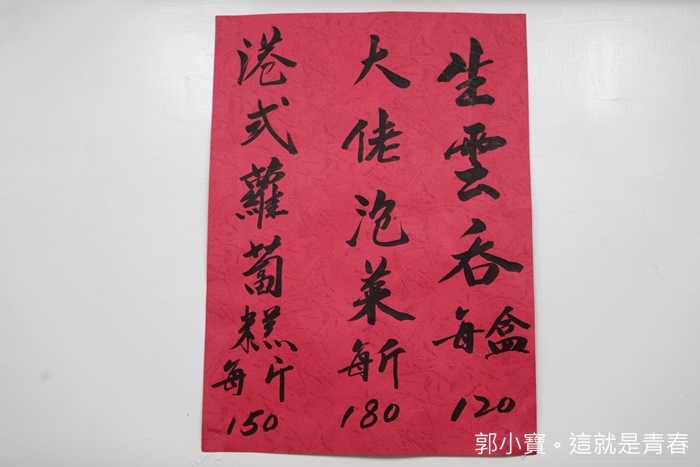 生雲吞
每盒
120
大佬泡菜
每斤
180
港式蘿蔔糕
每斤
150
郭小寶。這就是青春